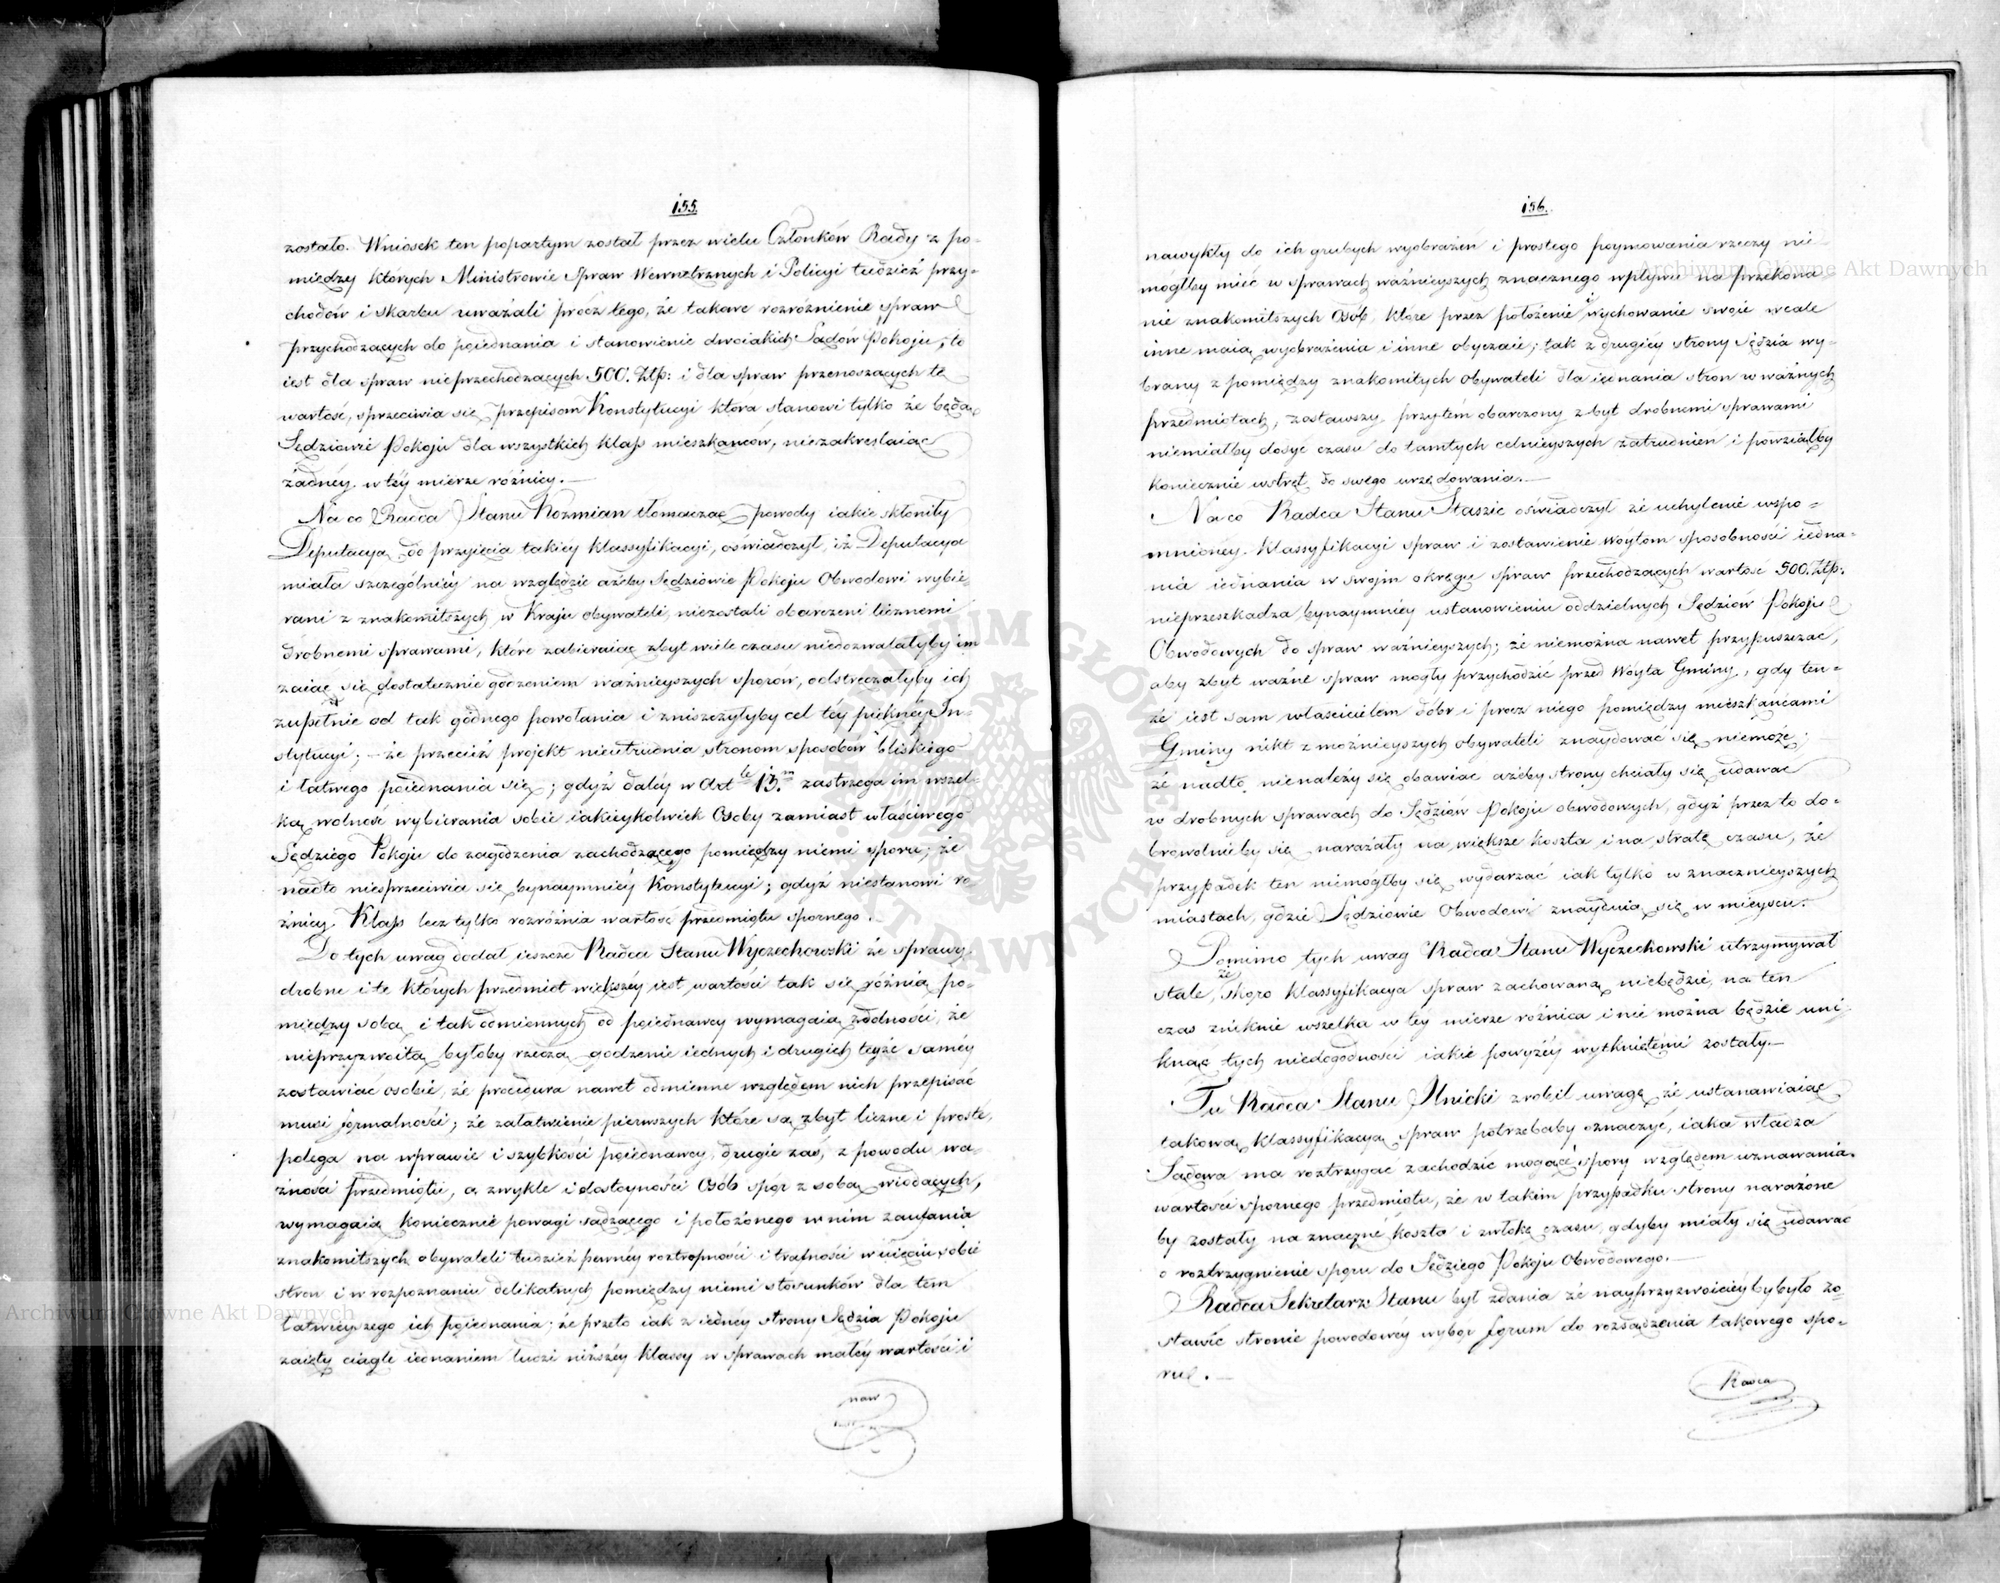 155.
zostało. Wniosek ten popartym został przez wielu Członków Rady z po-
między których Ministrowie Spraw Wewnętrznych i Policyi tudzież przy-
chodów i skarbu uważali prócz tego, że takowe rozróżnienie spraw
przychodzących do poiednania i stanowienie dwoiakich Sądów Pokoju, to
iest dla spraw nieprzechodzących 500. Złp: i dla spraw przenoszących tę
wartość, sprzeciwia się przepisom Konstytucyi która stanowi tylko że będą
Sędziowie Pokoju dla wszystkich klass mieszkańców, niezakreślaiąc
żadnéy w téy mierze różnicy. —
Na co Radca Stanu Koźmian tłomacząc powody iakie skłoniły
Deputacyą do przyięcia takiéy klassyfikacyi, oświadczył, iż Deputacya
miała szczególniéy na względzie ażeby Sędziowie Pokoju Obwodowi wybie-
rani z znakomitszych w Kraju obywateli, niezostali obarczeni licznemi
drobnemi sprawami, które zabieraiąc zbyt wiele czasu niedozwalałyby im
zaiąć się dostatecznie godzeniem ważnieyszych sporów, odstręczałyby ich
zupełnie od tak godnego powołania i zniszczyłyby cel téy piéknéy In-
stytucyi; — że przecież projekt nieutrudnia stronom sposobów bliskiego
i łatwego poiednania się; gdyż daléy w Art<sup>le</sup> 13.<sup>m</sup> zastrzega im wszel-
ką wolność wybierania sobie iakieykolwiek Osoby zamiast właściwego
Sędziego Pokoju do zagodzenia zachodzącego pomiędzy niemi sporu; że
nadto niesprzeciwia się bynaymniéy Konstytucyi; gdyż niestanowi ró-
żnicy Klass lecz tylko rozróżnia wartość przedmiotu spornego.
Do tych uwag dodał ieszcze Radca Stanu Wyczechowski że sprawy
drobne i te których przedmiot większéy iest wartości tak się różnią po-
między sobą i tak odmiennych od poiednawcy wymagaią zdolności, że
nieprzyzwoitą byłoby rzeczą godzenie iednych i drugich teyże saméy
zostawiać osobie, że procedura nawet odmienne względem nich przepisać
musi formalności; że załatwienie pierwszych które są zbyt liczne i proste,
polega na wprawie i szybkości poiednawcy, drugie zaś, z powodu wa-
żności przedmiotu, a zwykle i dostoyności Osób spór z sobą wiodących,
wymagaią koniecznie powagi sądzącego i położonego w nim zaufania
znakomitszych obywateli tudzież pewnéy roztropności i trafności w uięciu sobie
stron i w rozpoznaniu delikatnych pomiędzy niemi stosunków dla tem
łatwieyszego ich poiednania; że przeto iak z iednéy strony Sędzia Pokoju
zaięty ciągle iednaniem ludzi niższéy klassy w sprawach małéy wartości i
naw
156.
nawykły do ich grubych wyobrażeń i prostego poymowania rzeczy nie
mógłby mieć w sprawach ważnieyszych znacznego wpływu na przekona-
nie znakomitszych Osób, które przez położenie i wychowanie swoie wcale
inne maią wyobrażenia i inne obyczaie; tak z drugiey strony Sędzia wy-
brany z pomiędzy znakomitych obywateli dla iednania stron w ważnych
przedmiotach, zostawszy przytém obarczony zbyt drobnemi sprawami
niemiałby dosyć czasu do tamtych celnieyszych zatrudnień i powziąłby
koniecznie wstręt do swego urzędowania. —
Na co Radca Stanu Staszic oświadczył że uchylenie wspo-
mnionéy Klassyfikacyi spraw i zostawienie Woytom sposobności iedna-
nia iednania w swoim okręgu spraw przechodzących wartość 500. Złp:
nieprzeszkadza bynaymniéy ustanowieniu oddzielnych Sędziów Pokoju
Obwodowych do spraw ważnieyszych; że niemożna nawet przypuszczać,
aby zbyt ważne spraw mogły przychodzić przed Woyta Gminy, gdy ten-
że iest sam właścicielem dóbr i prócz niego pomiędzy mieszkańcami
Gminy nikt z możnieyszych obywateli znaydować się niemoże;
że nadto nienależy się obawiać ażeby strony chciały się udawać
w drobnych sprawach do Sędziów Pokoju obwodowych, gdyż przez to do-
browolnieby się narażały na większe koszta i na stratę czasu, że
przypadek ten niemógłby się wydarzać iak tylko w znacznieyszych
miastach, gdzie Sędziowie Obwodowi znaydują się w mieyscu.
Pomimo tych uwag Radca Stanu Wyczechowski utrzymywał
stale, że skoro klassyfikacya spraw zachowaną niebędzie, na ten
czas zniknie wszelka w téy mierze różnica i nie można będzie uni-
knąć tych niedogodności iakie powyżéy wytkniętemi zostały. —
Tu Radca Stanu Ilnicki zrobił uwagę że ustanawiaiąc
takową klassyfikacyą spraw potrzebaby oznaczyć, iaka władza
Sądowa ma roztrzygać zachodzić mogące spory względem uznawania
wartości spornego przedmiotu, że w takim przypadku strony narażone
by zostały na znaczne koszta i zwłokę czasu, gdyby miały się udawać
o roztrzygnienie sporu do Sędziego Pokoju Obwodowego. —
Radca Sekretarz Stanu był zdania że nayprzyzwoiciey by było zo-
stawić stronie powodowéy wybór forum do rozsądzenia takowego spo-
ru. —
Radca
Archiwum Główne Akt Dawnych
Archiwum Główne Akt Dawnych
ARCHIWUM GŁÓWNE AKT DAWNYCH